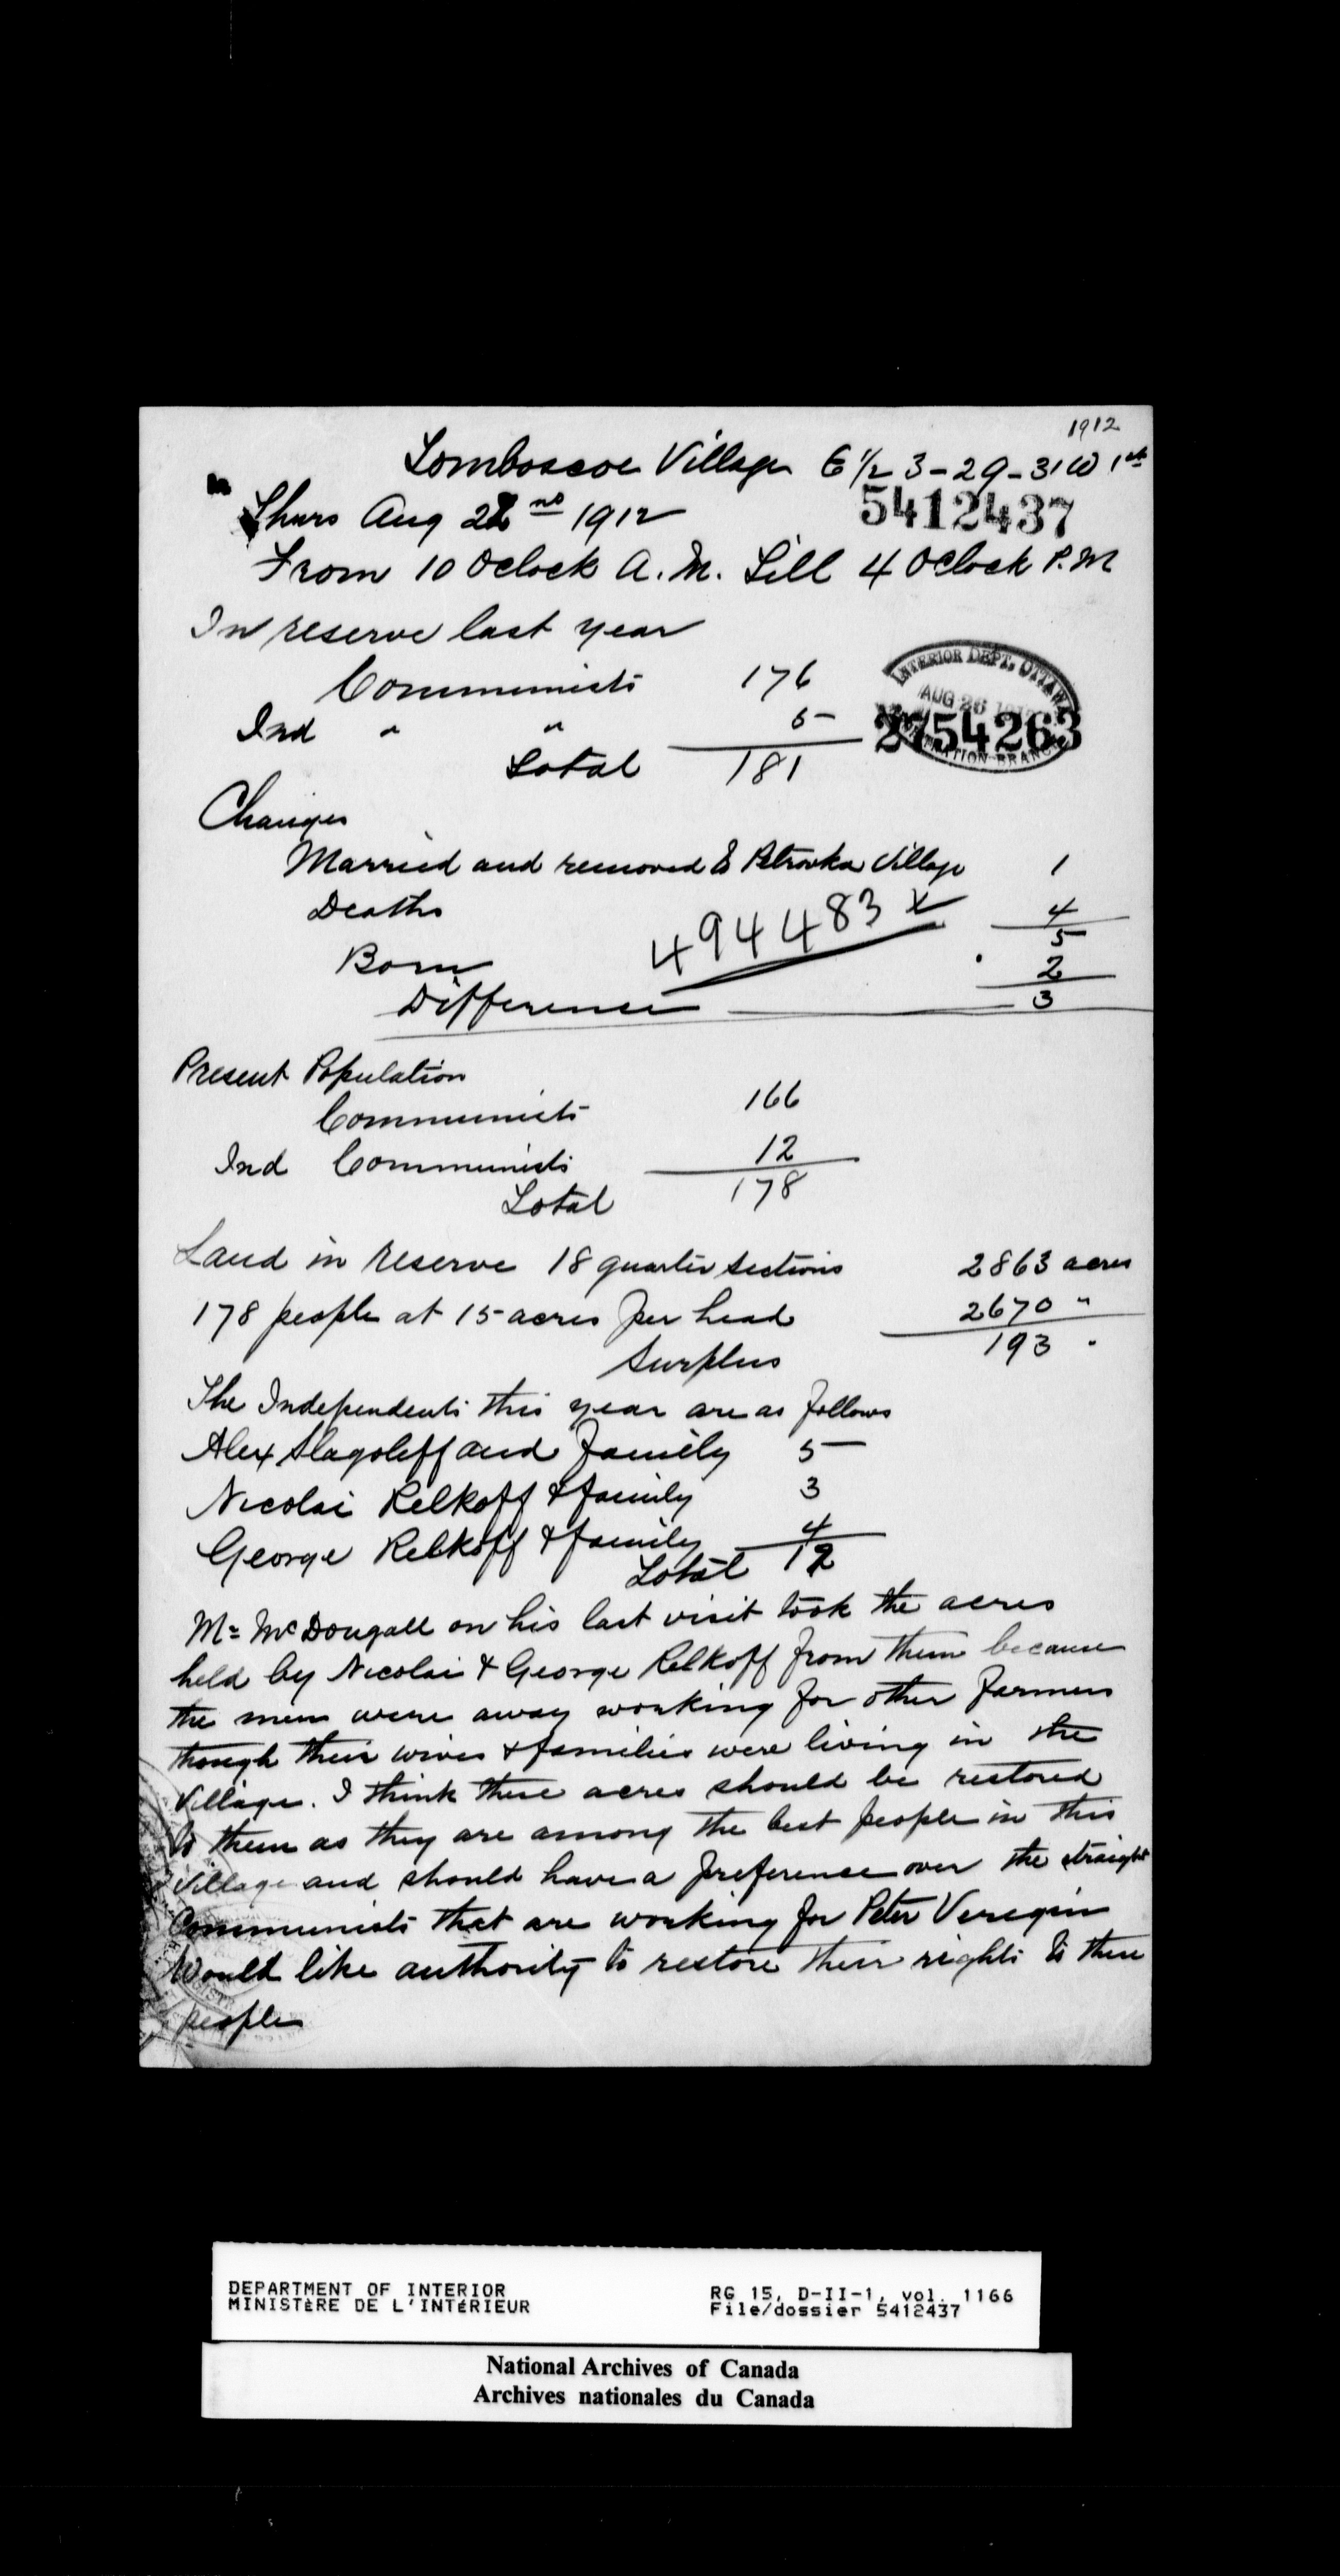 1912
Tomboscoe Village E 1/2 3-29-31 W 1st
5412437
Thurs Aug 22nd 1912
From 10 Oclock A.M. Till 4 OClock P.M
In reserve last year
Communists 176
Ind " " 5
Total 181
INTERIOR DEPT, OTTAWA
AUG 26 1912
2754263
Changes
Married and removed to Petrovka Village 1
Deaths 4
494483 5
Born 2
Difference 3
Present Population
Communists 166
Ind Communists 12
Total 178
Land in reserve 18 quarter sections 2863 acres
178 people at 15 acres per head 2670 "
Surplus 193 "
The Independents this year are as follows
Alex Slagoleff and family 5
Nicolai Relkoff & family 3
George Relkoff & family 4
Total 12
Mr McDougall on his last visit took the acres
held by Nicolai & George Relkoff from them because
the men were away working for other farmers
though their wives & families were living in the
Village. I think these acres should be restored
to them as they are among the best people in this
Village and should have a preference over the straight
Communists that are working for Peter Veregin
Would like authority to restore their rights to these
people
DEPARTMENT OF INTERIOR
MINISTÈRE DE L'INTÉRIEUR
RG 15, D-II-1, vol. 1166
File/dossier 5412437
National Archives of Canada
Archives nationales du Canada